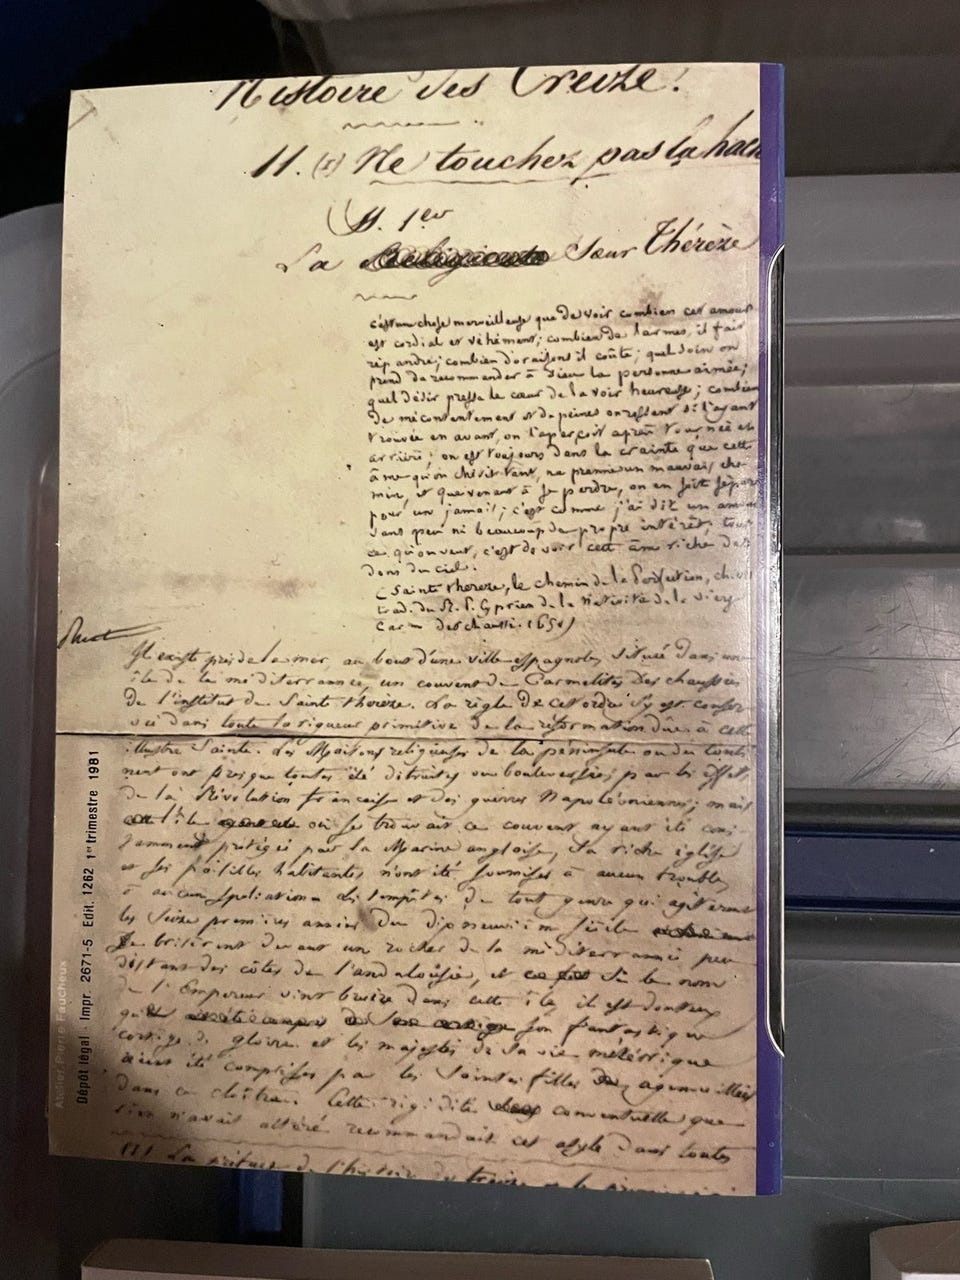 Histoire des Treize.
II. (1) Ne touchez pas la hache
§. 1er
La Sœur Thérèze
c'est une chose merveilleuse que de voir combien cet amour
est cordial et véhément; combien de larmes il fait
répandre; combien d'oraisons il coûte; quel soin on
prend de recommander à Dieu la personne aimée;
quel désir presse le cœur de la voir heureuse; combien
de mécontentement et de peines on ressent si l'ayant
trouvée en avant, on l'aperçoit après tournée en
arrière; on est toujours dans la crainte que cette
âme qu'on chérit tant, ne prenne un mauvais che-
min, et que venant à se perdre, on en soit séparé
pour un jamais; c'est comme j'ai dit un amour
sans peu ni beaucoup de propre intérêt, tout
ce qu'on veut, c'est de voir cette âme riche des
dons du ciel.
(Sainte thereze, le chemin de la Perfection, ch.
trad. du R. P. Cyprien de la Nativité de la vierge
Carme deschaussé. 1650)
Il existe près de la mer, au bout d'une ville espagnole, située dans une
île de la méditerrannée, un couvent de Carmelites Deschaussées
de l'institut de Sainte thérèze. La règle de cet ordre s'y est conser
vée dans toute la rigueur primitive de la réformation dûe à cette
illustre Sainte. Les Maisons religieuses de la péninsule ou du conti
nent ont presque toutes été détruites ou bouleversées par les effets
de la Révolution française et des guerres Napoléoniennes; mais
l'île où se trouvait ce couvent ayant été cons-
tamment protégée par la Marine angloise, sa riche église
et ses paisibles habitantes n'ont été soumises à aucun trouble,
à aucune spoliation. Les tempêtes de tout genre qui agitèrent
les Seize premières années du dixneuvième siècle
se brisèrent devant un rocher de la méditerrannée peu
distant des côtes de l'andalousie, et Si le nom
de l'Empereur vint bruire dans cette île, il est douteux
que son fantastique
cortège de gloire et les majestés de sa vie météorique
aient été comprises par les Saintes filles agenouillées
dans ce cloître. Cette rigidité conventuelle que
rien n'avait altéré recommandait cet asyle dans toutes
(1) La préface de l'histoire des treize et le premier
Atelier Pierre Faucheux
Dépôt légal - Impr. 2671-5 Edit. 1262 1er trimestre 1981